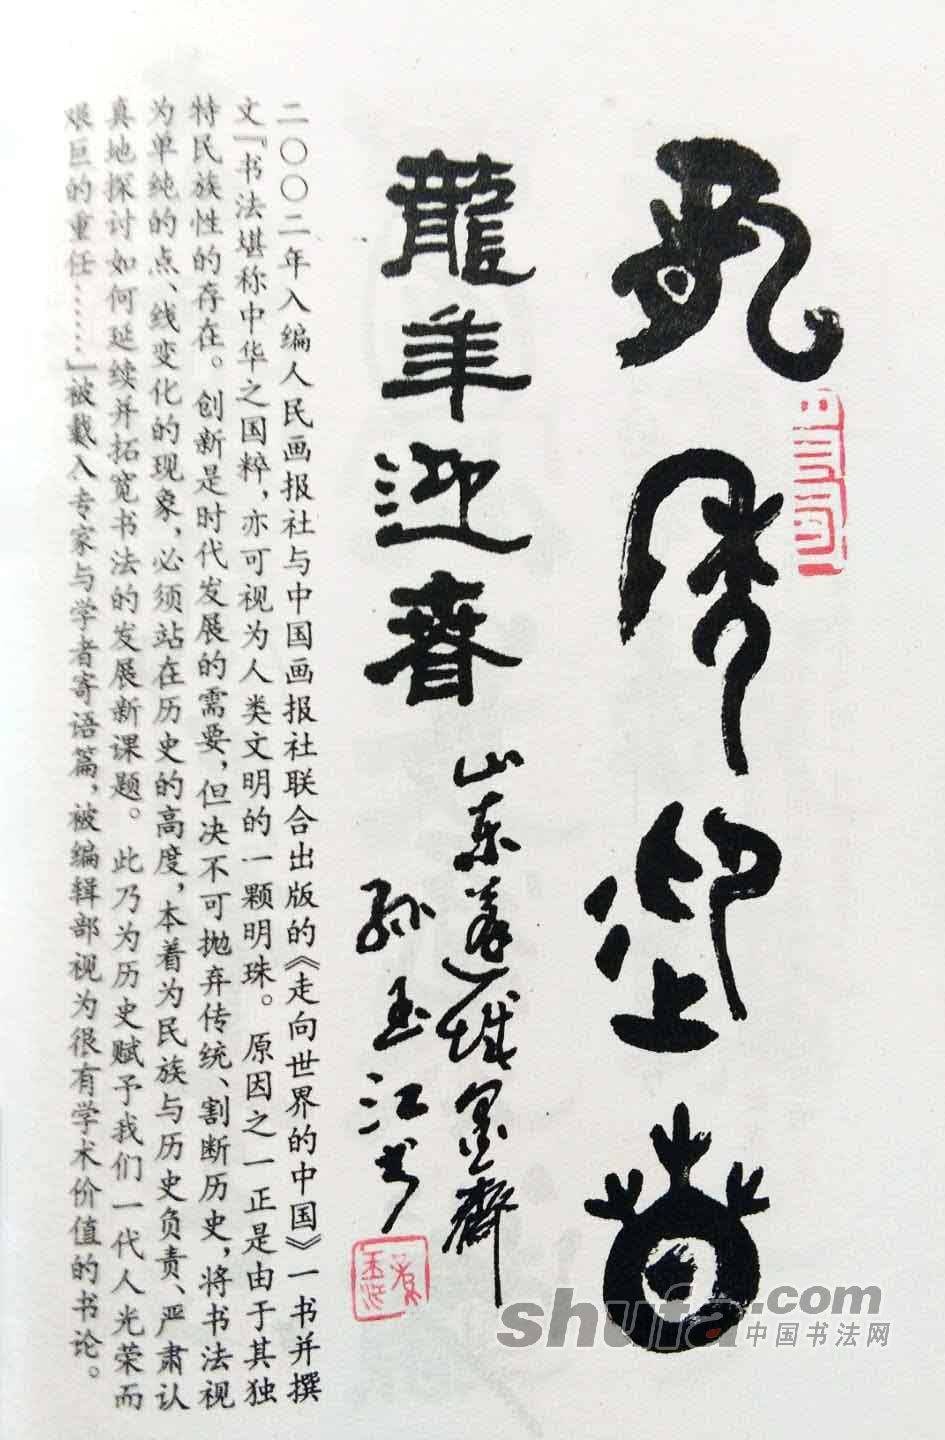 龍年迎春
龍年迎春
山东蓬城墨斋
孙玉江书
二〇〇二年入编人民画报社与中国画报社联合出版的《走向世界的中国》一书并撰
文『书法堪称中华之国粹,亦可视为人类文明的一颗明珠。原因之一正是由于其独
特民族性的存在。创新是时代发展的需要,但决不可抛弃传统、割断历史,将书法视
为单纯的点、线变化的现象,必须站在历史的高度,本着为民族与历史负责、严肃认
真地探讨如何延续并拓宽书法的发展新课题。此乃为历史赋予我们一代人光荣而
艰巨的重任……』被载入专家与学者寄语篇,被编辑部视为很有学术价值的书论。
shufa.com
中国书法网